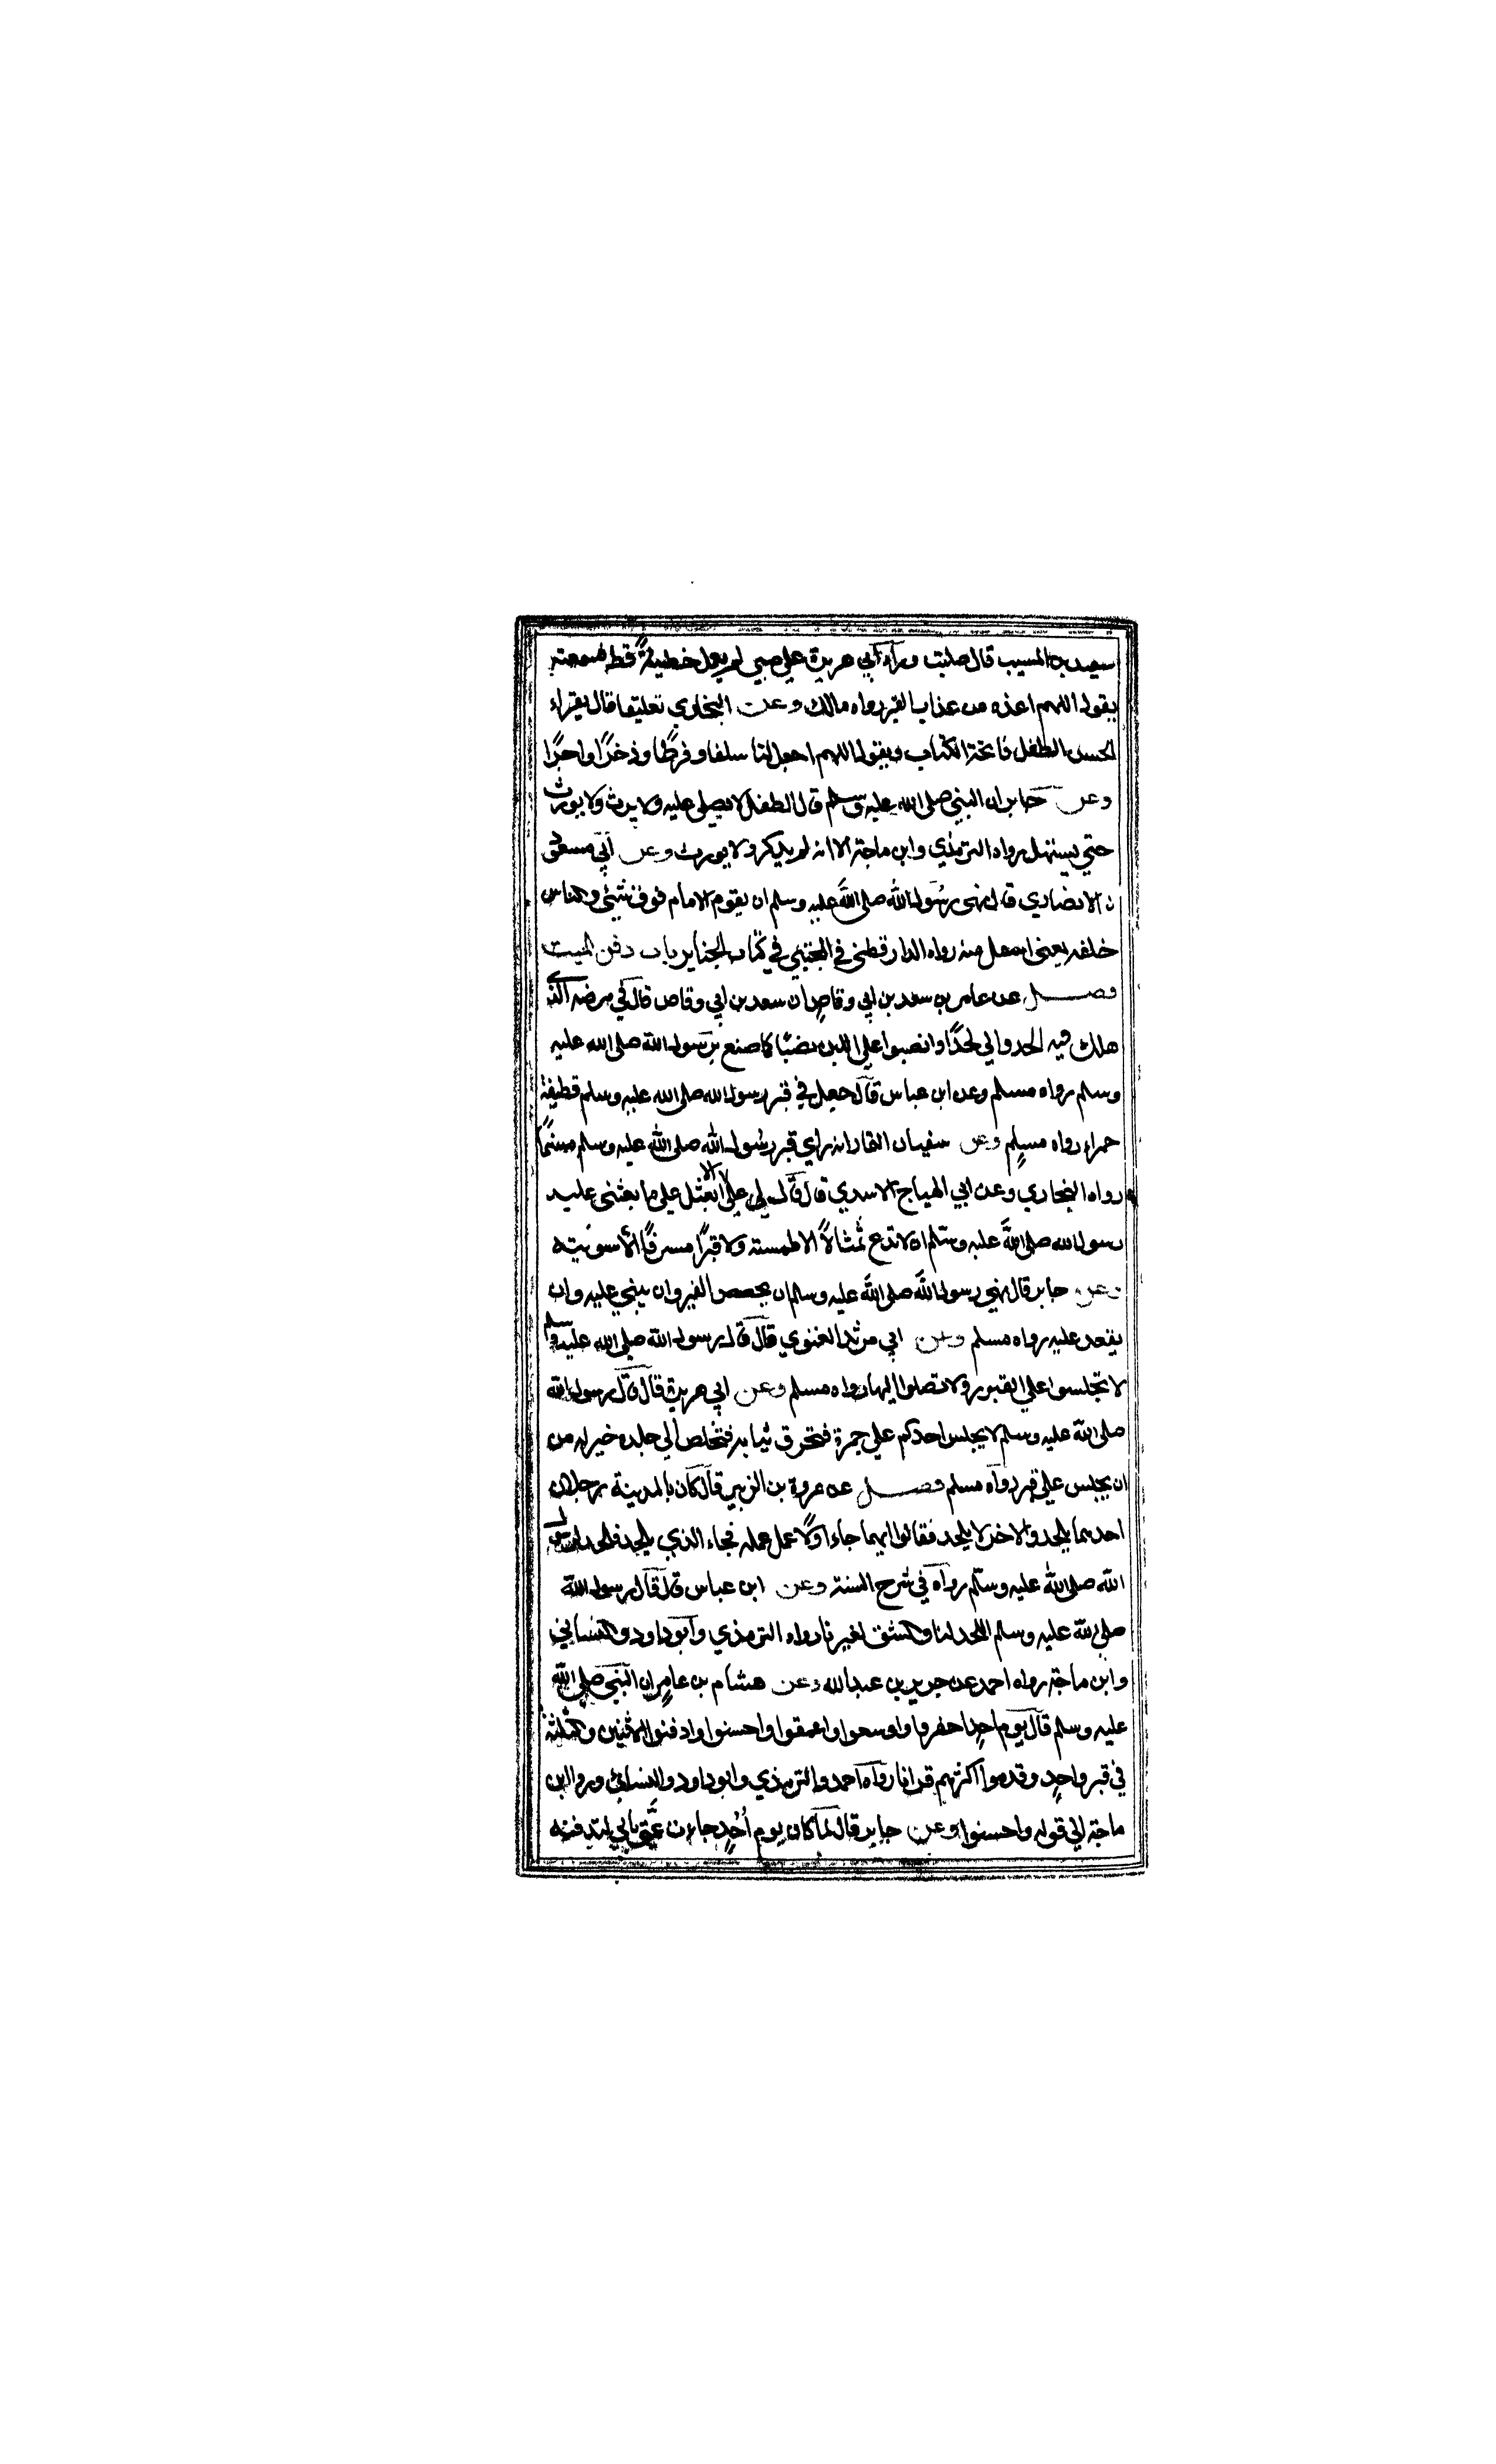 سعيد بن المسيب قال صليت وراء ابي هريرة علي صبي لم يعمل خطيئةً قط فسمعته
يقول اللهم اعذه من عذاب القبر رواه مالك وعن البخاري تعليقا قال يقراء
الحسن الطفل فاتحة الكتاب ويقول اللهم اجعل لنا سلفا وفرطًا وذخرًا واجرًا
وعن جابر ان النبي صلى الله عليه وسلم قال الطفل لا يصلى عليه ولا يرث ولا يورث
حتي يستهل رواه الترمذي وابن ماجة الا انه لم يذكر ولا يورث وعن أبي مسعو
ن الانصاري قال نهى رسُول الله صلى الله عليه وسلم ان يقوم الامام فوق شيئ والناس
خلفه يعني اسفل منه رواه الدارقطني في المجتبي في كتاب الجنايز باب دفن الميت
فصل عن عامر بن سعد بن ابي وقاصٍ ان سعد بن ابي وقاص قال في مرضه الذي
هلك فيه الحدوا لي لحدًا وانصبوا علي اللبن نصبًا كما صنع برسول الله صلى الله عليه
وسلم رواه مسلم وعن ابن عباس قال جعل في قبر رسول الله صلى الله عليه وسلم قطيفة
حمراء رواه مسلم وعن سفيان التمار انه راي قبر رسُول الله صلى الله عليه وسلم مسنمًا
رواه البخاري وعن ابي الهياج الاسدي قال قال لي علي الا ابعثك على ما بعثني عليه
رسول الله صلى الله عليه وسلم ان لا تدع تمثالاً الا طمسته ولا قبرًا مسرفًا الا سويته
وعن جابر قال نهي رسول الله صلى الله عليه وسلم ان يجصص القبر وان يبني عليه وان
يقعد عليه رواه مسلم وعن ابي مرثد الغنوي قال قال رسول الله صلى الله عليه وسلم
لا تجلسوا علي القبور ولا تصلوا اليها رواه مسلم وعن ابي هريرة قال قال رسول الله
صلى الله عليه وسلم لا يجلس احدكم علي جمرة فتحرق ثيابه فتخلص الي جلده خير له من
ان يجلس علي قبر رواه مسلم فصل عن عروة بن الزبير قال كان بالمدينة رجلان
احدهما يلحد والاخر لا يلحد فقالوا ايهما جاء اولاً عمل عمله فجاء الذي يلحد فلحد لرسول
الله صلى الله عليه وسلم رواه في شرح السنة وعن ابن عباس قال قال رسول الله
صلى الله عليه وسلم اللحد لنا والشق لغيرنا رواه الترمذي وابو داود والنسائي
وابن ماجة رواه احمد عن جرير بن عبد الله وعن هشام بن عامرٍ ان النبي صلى الله
عليه وسلم قال يوم احدٍ احفروا واوسعوا واعمقوا واحسنوا وادفنوا الاثنين والثلثة
في قبر واحدٍ وقدموا اكثرهم قرانا رواه احمد والترمذي وابو داود والنسائ وروا ابن
ماجة الي قوله واحسنوا وعن جابر قال لما كان يوم أُحُدٍ جاءت عمَّتي بابي لتدفنه